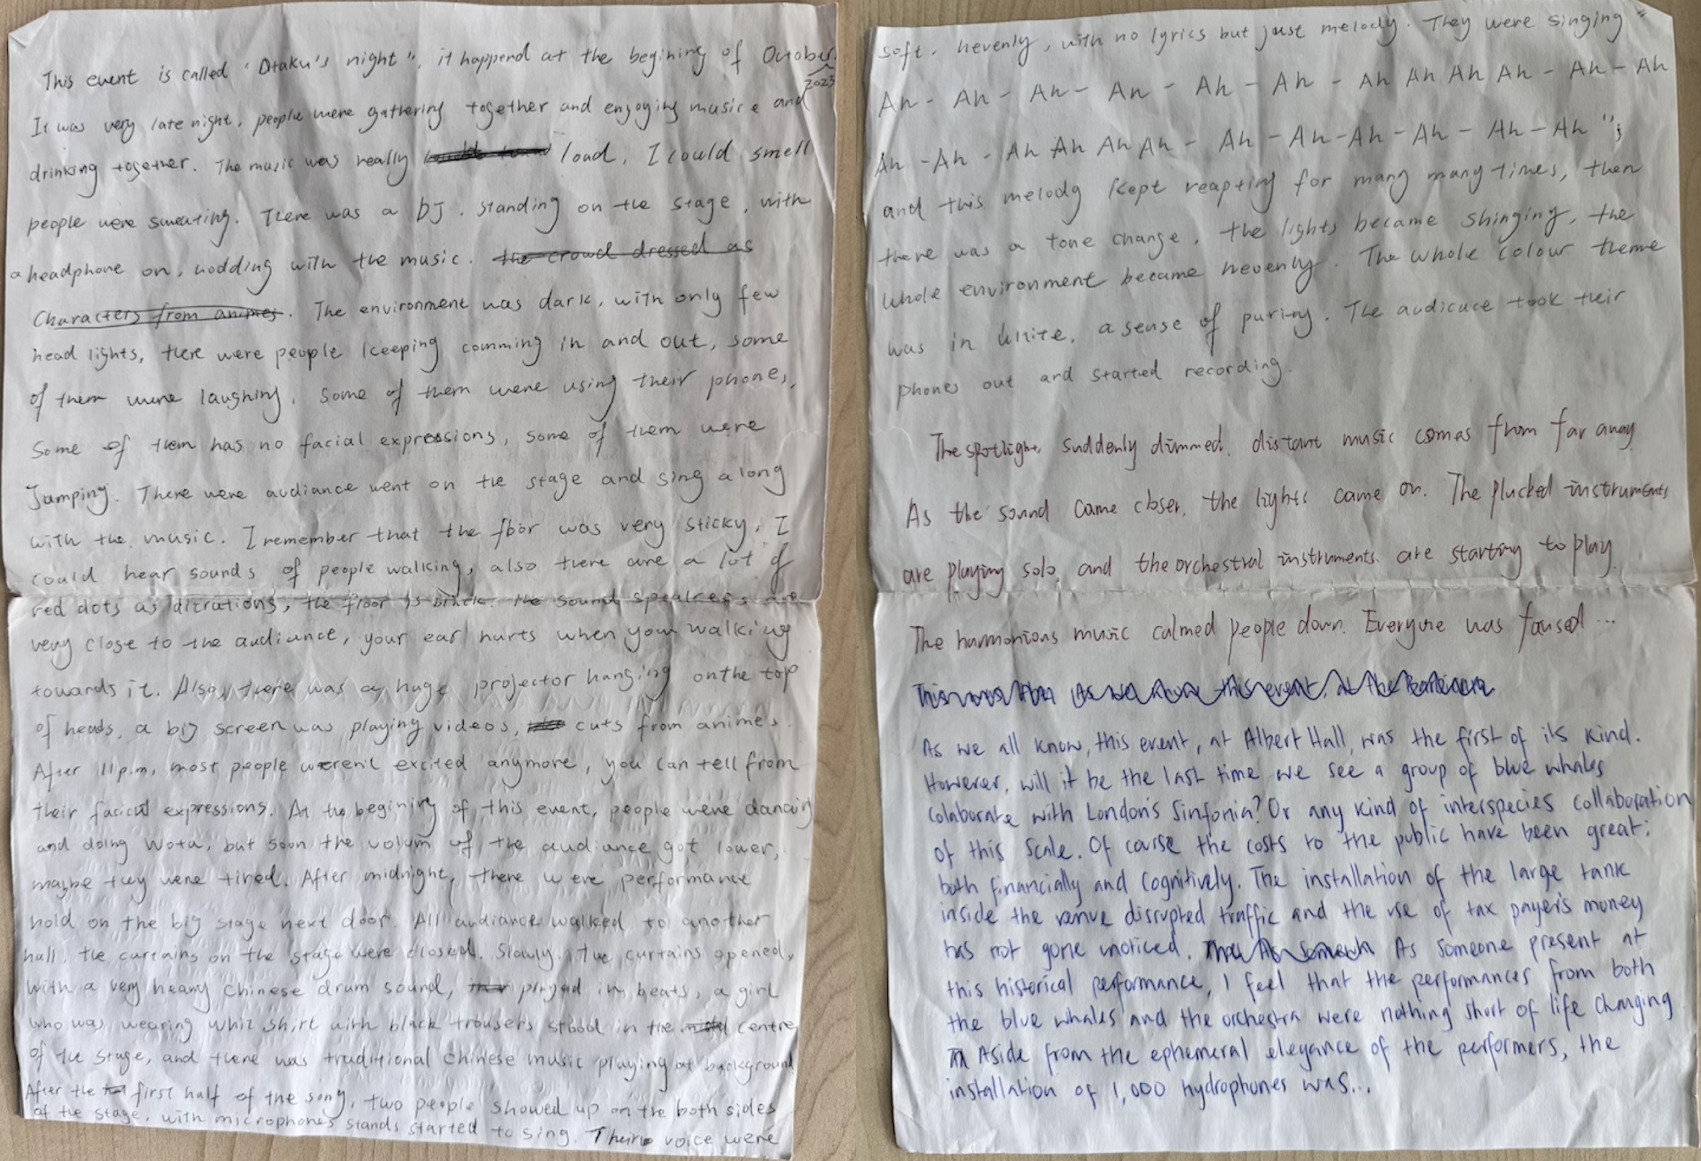 This event is called "Otaku's night", it happend at the begining of October.
2023
It was very late night, people were gathering together and enjoying music and
drinking together. The music was really load, I could smell
people were sweating. There was a DJ, standing on the stage, with
a headphone on, nodding with the music. the crowd dressed as
characters from animes. The environment was dark, with only few
head lights, there were people keeping comming in and out, some
of them were laughing, some of them were using their phones,
some of them has no facial expressions, some of them were
Jumping. There were audiance went on the stage and sing along
with the music. I remember that the floor was very sticky, I
could hear sounds of people walking, also there are a lot of
red dots as dicrations, the floor is black. the sound speakers are
very close to the audiance, your ear hurts when your walking
towards it. Also, there was a huge projector hanging on the top
of heads, a big screen was playing videos, cuts from animes.
After 11 p.m, most people weren't excited anymore, you can tell from
their facial expressions. At the begining of this event, people were dancing
and doing Wota, but soon the volum of the audiance got lower,
maybe they were tired. After midnight, there were performance
hold on the big stage next door. All audiance walked to another
hall, the curtains on the stage were closed. Slowly, the curtains opened,
with a very heavy chinese drum sound, played in beats, a girl
who was wearing whit shirt with black trousers stood in the centre
of the stage, and there was traditional chinese music playing at background
After the first half of the song, two people showed up on the both sides
of the stage, with microphones stands started to sing. Their voice were
soft, hevenly, with no lyrics but just melody. They were singing "
Ah - Ah - Ah - Ah - Ah - Ah - Ah Ah Ah Ah - Ah - Ah
Ah - Ah - Ah Ah Ah Ah - Ah - Ah - Ah - Ah - Ah - Ah ";
and this melody kept reapting for many many times, then
there was a tone change, the lights became shinging, the
whole environment became hevenly. The whole colour theme
was in white, a sense of purity. The audicuce took their
phones out and started recording.
The spotlight suddenly dimmed, distant music comas from far away.
As the sound came closer, the lights came on. The plucked instruments
are playing solo, and the orchestral instruments are starting to play.
The harmonious music calmed people down. Everyone was foused ...
As we all know, this event, at Albert Hall, was the first of its kind.
However, will it be the last time we see a group of blue whales
colaborate with London's Sinfonia? Or any kind of interspecies collaboration
of this scale. Of carse the costs to the public have been great;
both financially and cognitively. The installation of the large tank
inside the venue disrupted traffic and the use of tax payer's money
has not gone unoticed. As someone present at
this historical performance, I feel that the performances from both
the blue whales and the orchestra were nothing short of life changing
Aside from the ephemeral elegance of the performers, the
installation of 1,000 hydrophones was...